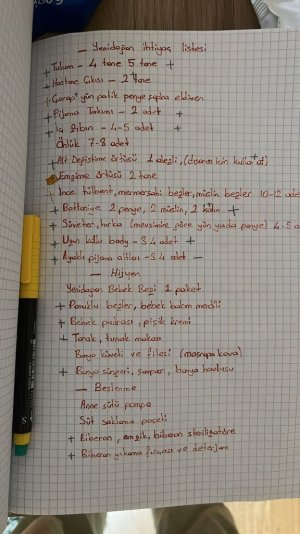 — Yenidoğan ihtiyaç listesi
+ Tulum - 4 tane 5 tane +
+ Hastane Çıkışı - 2 tane
+ Çorap + yün patik penye şapka eldiven
+ Pijama Takımı - 2 adet +
+ İç Zıbın - 4-5 adet +
Önlük 7-8 adet
+ Alt Değiştirme örtüsü 1 adet,
Emzirme örtüsü 2 tane
İnce tülbent, mermerşahi bezler, müslin bezler 10-12 adet
+ Battaniye 2 penye, 2 müslin, 2 kalın +
+ Süveter, hırka (mevsimine göre yün yada penye) 4-5
+ Uzun kollu body - 3 4 adet +
+ Ayaklı pijama altları - 3 4 adet —
— Hijyen
Yenidoğan Bebek Bezi 1 paket
+ Pamuklu bezler, bebek bakım mendili
+ Bebek pudrası, pişik kremi
+ Tarak, tırnak makası
Banyo küveti ve filesi (maşrapa kova)
+ Banyo süngeri, şampuan, banyo havlusu
— Beslenme
Anne sütü pompa
Süt saklama poşeti
+ Biberon, emzik, biberon sterilizatöre
+ Biberon yıkama fırçası ve deterjanı